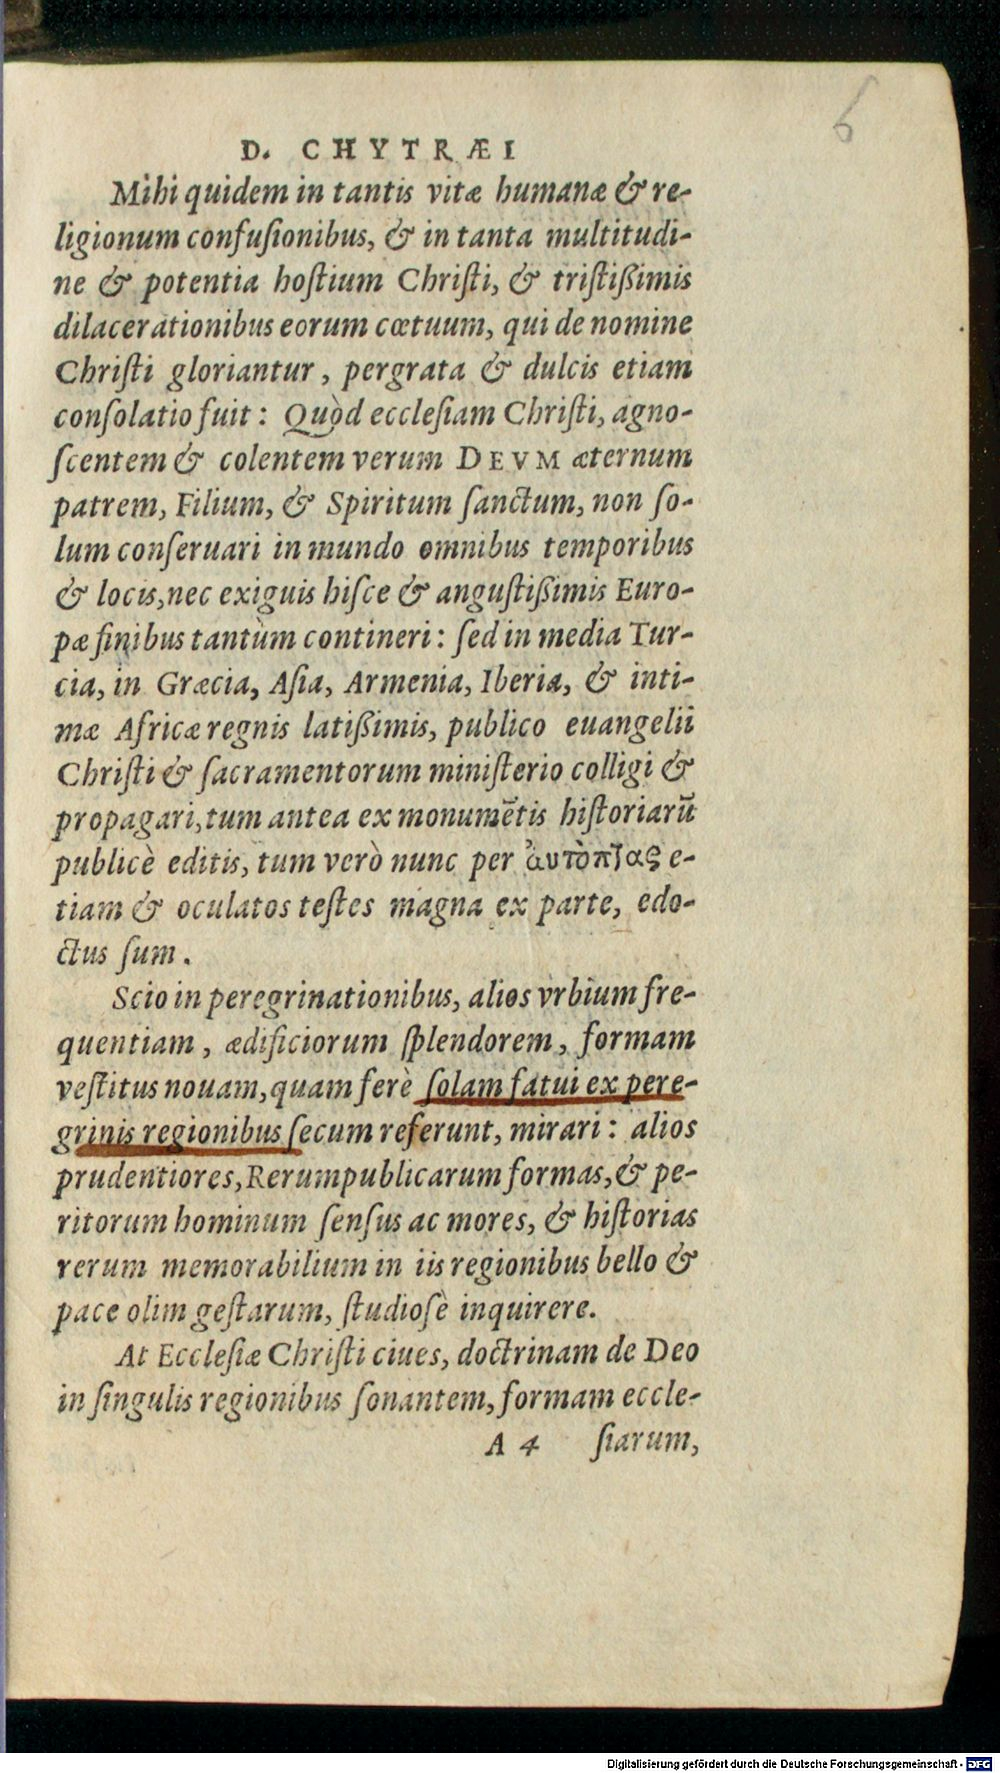 6
D. CHYTRÆI
Mihi quidem in tantis vitæ humanæ & re-
ligionum confuſionibus, & in tanta multitudi-
ne & potentia hoſtium Chriſti, & triſtißimis
dilacerationibus eorum cœtuum, qui de nomine
Chriſti gloriantur, pergrata & dulcis etiam
conſolatio fuit: Quòd eccleſiam Chriſti, agno-
ſcentem & colentem verum DEVM æternum
patrem, Filium, & Spiritum ſanctum, non ſo-
lum conſeruari in mundo omnibus temporibus
& locis, nec exiguis hiſce & anguſtißimis Euro-
pæ finibus tantùm contineri: ſed in media Tur-
cia, in Græcia, Aſia, Armenia, Iberia, & inti-
mæ Africæ regnis latißimis, publico euangelii
Chriſti & ſacramentorum miniſterio colligi &
propagari, tum antea ex monumẽtis hiſtoriarũ
publicè editis, tum verò nunc per ἀυτὸπ]ας e-
tiam & oculatos teſtes magna ex parte, edo-
ctus ſum.
Scio in peregrinationibus, alios vrbium fre-
quentiam, ædificiorum ſplendorem, formam
veſtitus nouam, quam ferè ſolam fatui ex pere-
grinis regionibus ſecum referunt, mirari: alios
prudentiores, Rerumpublicarum formas, & pe-
ritorum hominum ſenſus ac mores, & hiſtorias
rerum memorabilium in iis regionibus bello &
pace olim geſtarum, ſtudioſè inquirere.
At Eccleſiæ Chriſti ciues, doctrinam de Deo
in ſingulis regionibus ſonantem, formam eccle-
A 4 ſiarum,
Digitalisierung gefördert durch die Deutsche Forschungsgemeinschaft - DFG